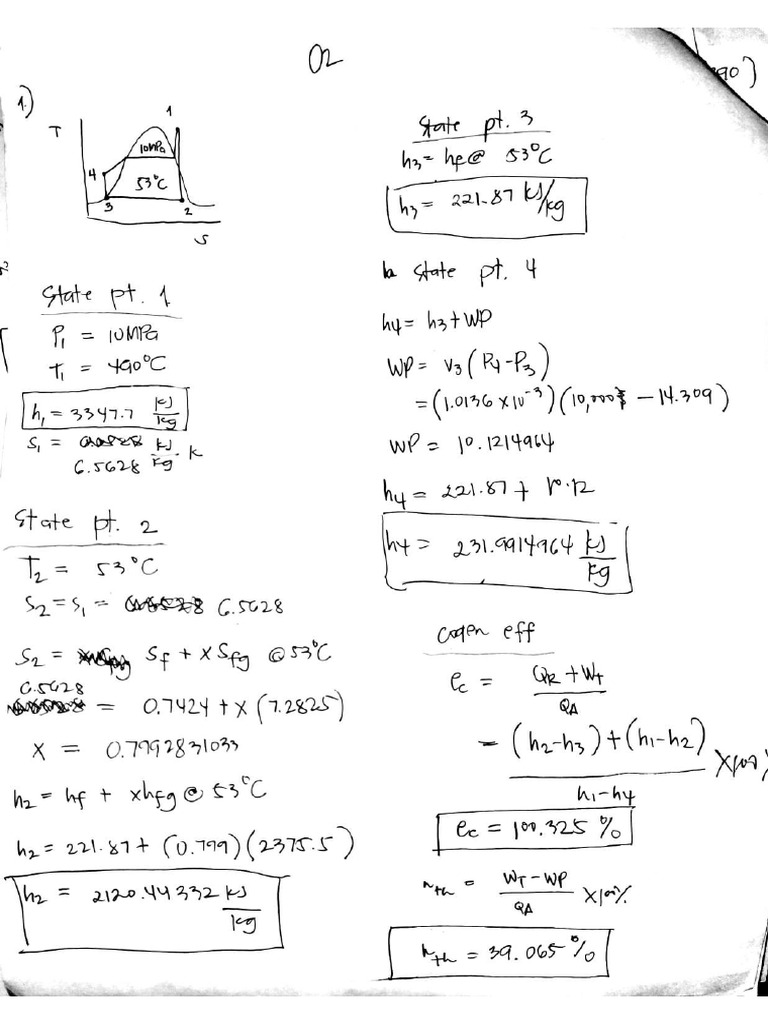 02
90)
1.)
T
1
10MPa
4
53°C
3
2
S
State pt. 1
P₁ = 10MPa
T₁ = 490°C
h₁ = 3347.7 kJ/kg
S₁ =
6.5628 kJ/kg·K
State pt. 2
T₂ = 53°C
S₂ = S₁ = 6.5628
S₂ = Sf + x Sfg @ 53°C
6.5628 = 0.7424 + x (7.2825)
x = 0.7992831033
h₂ = hf + xhfg @ 53°C
h₂ = 221.87 + (0.799)(2375.5)
h₂ = 2120.44332 kJ/kg
State pt. 3
h₃ = hf @ 53°C
h₃ = 221.87 kJ/kg
State pt. 4
h4 = h3 + WP
WP = v₃ (P4 - P3)
= (1.0136 x 10⁻³)(10,000 - 14.309)
WP = 10.1214964
h4 = 221.87 + 10.12
h4 = 231.9914964 kJ/kg
cogen eff
ec = (QR + WT)/QA
= ((h2-h3) + (h1-h2))/(h1-h4) x100%
ec = 100.325 %
nth = (WT - WP)/QA x100%
nth = 39.065 %